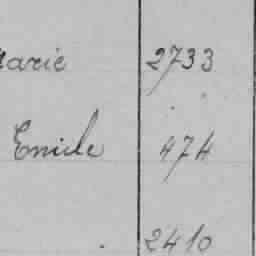 Marie 2733
Emile 474
2410